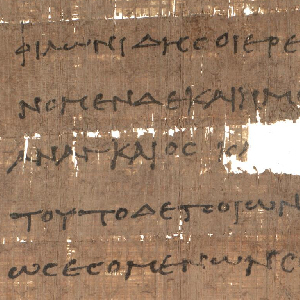 ΦΙΛΩΝΙΔΗϹΟΙΕΡΕ
ΝΟΜΕΝΔΕΚΑΙ
ΑΝΑΓΚΑΙΟϹ Κ
ΤΟΥΤΟΔΕΠΟΙΩΝ
ΩϹΕϹΟΜΕΝΩΝϹ